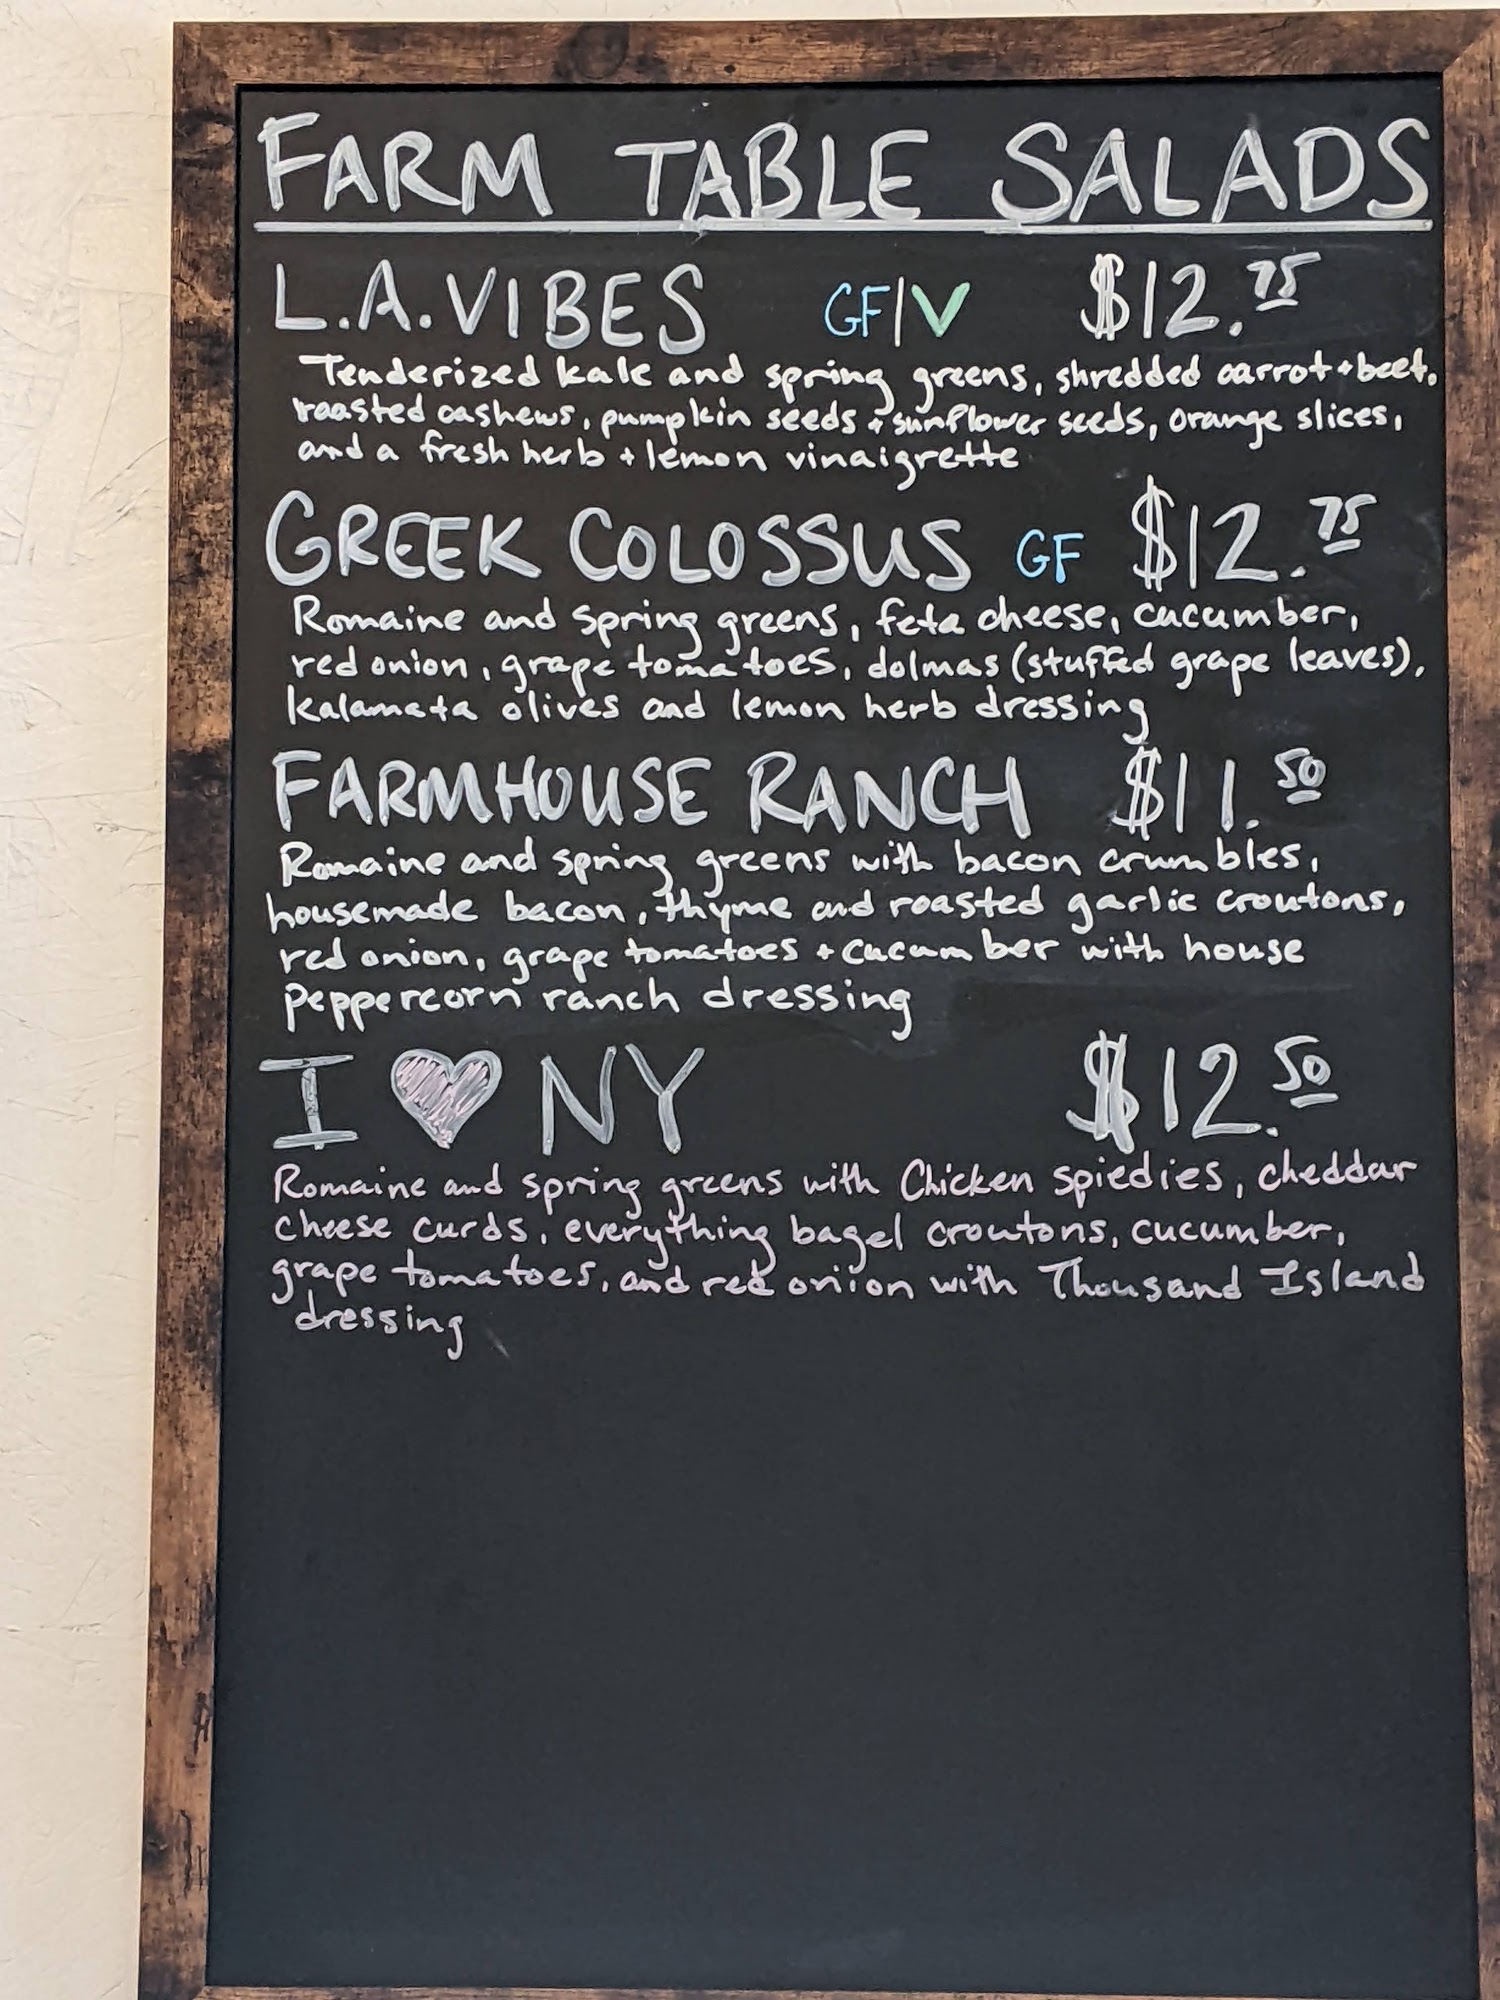 FARM TABLE SALADS
L.A. VIBES GF|V $12.75
Tenderized kale and spring greens, shredded carrot + beet,
roasted cashews, pumpkin seeds + sunflower seeds, orange slices,
and a fresh herb + lemon vinaigrette
GREEK COLOSSUS GF $12.75
Romaine and spring greens, feta cheese, cucumber,
red onion, grape tomatoes, dolmas (stuffed grape leaves),
kalamata olives and lemon herb dressing
FARMHOUSE RANCH $11.50
Romaine and spring greens with bacon crumbles,
housemade bacon, thyme and roasted garlic croutons,
red onion, grape tomatoes + cucumber with house
peppercorn ranch dressing
I ♥ NY $12.50
Romaine and spring greens with Chicken spiedies, cheddar
cheese curds, everything bagel croutons, cucumber,
grape tomatoes, and red onion with Thousand Island
dressing